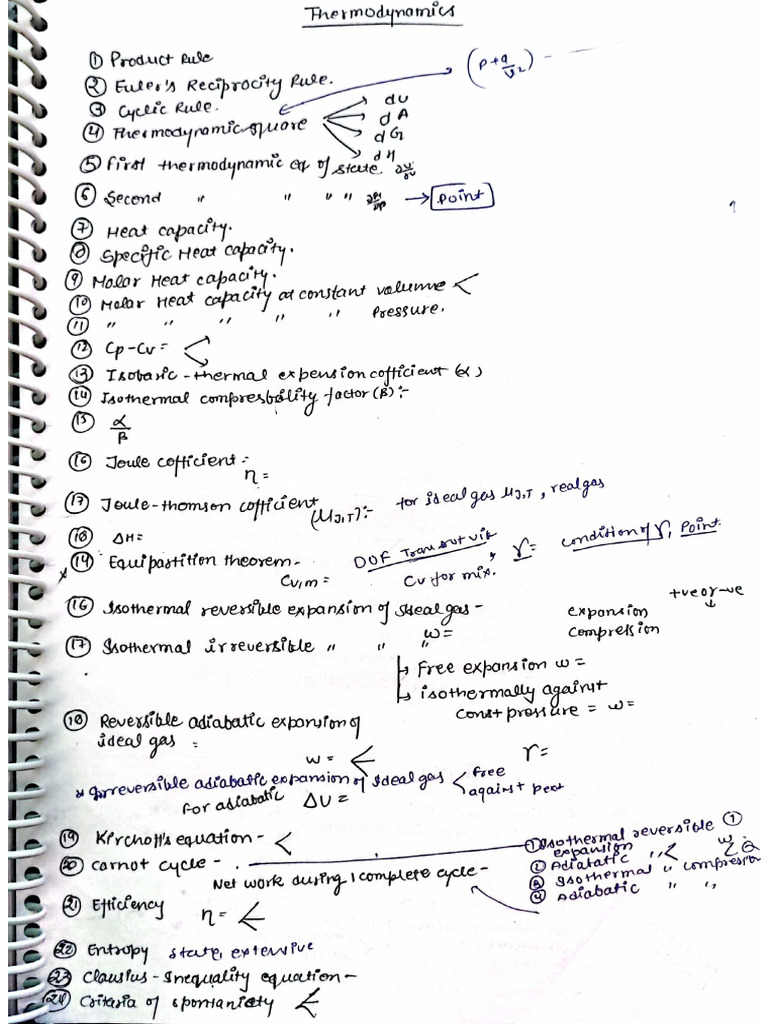 Thermodynamics
① Product Rule
② Euler's Reciprocity Rule.
(P + a/V²) -
③ Cyclic Rule.
④ Thermodynamic square
dU
dA
dG
dH
⑤ First thermodynamic eq of state. ∂U/∂V
⑥ Second " " " " ∂H/∂P → Point
⑦ Heat capacity.
⑧ Specific Heat capacity.
⑨ Molar Heat capacity.
⑩ Molar Heat capacity at constant volume <
⑪ " " " " " Pressure.
⑫ Cp-Cv = <
⑬ Isobaric - thermal expension cofficient (α)
⑭ Isothermal compresbility factor (β):-
⑮ α/β
⑯ Joule cofficient :-
η =
⑰ Joule-thomson cofficient (μJ,T):- for ideal gas μJ,T, real gas
⑱ ΔH=
⑭ Equipartition theorem- DOF Trans rot vib γ= condition of γ, Point
Cv,m = Cv for mix.
⑯ Isothermal reversible expansion of ideal gas - expansion +ve or -ve
w= compression
⑰ Isothermal irreversible " " "
↳ Free expansion w=
↳ isothermally against
const pressure = w=
⑱ Reversible adiabatic expansion of
ideal gas :
w = < γ=
* Irreversible adiabatic expansion of ideal gas < free
against
for adiabatic ΔU =
⑲ Kirchoff's equation - <
⑳ Carnot cycle - .
① Isothermal reversible ①
expansion w
② Adiabatic " < ②
③ Isothermal " compression
④ Adiabatic " "
Net work during 1 complete cycle -
㉑ Efficiency η = <
㉒ Entropy state, extensive
㉓ Clausius - Inequality equation -
㉔ Criteria of spontaniety <